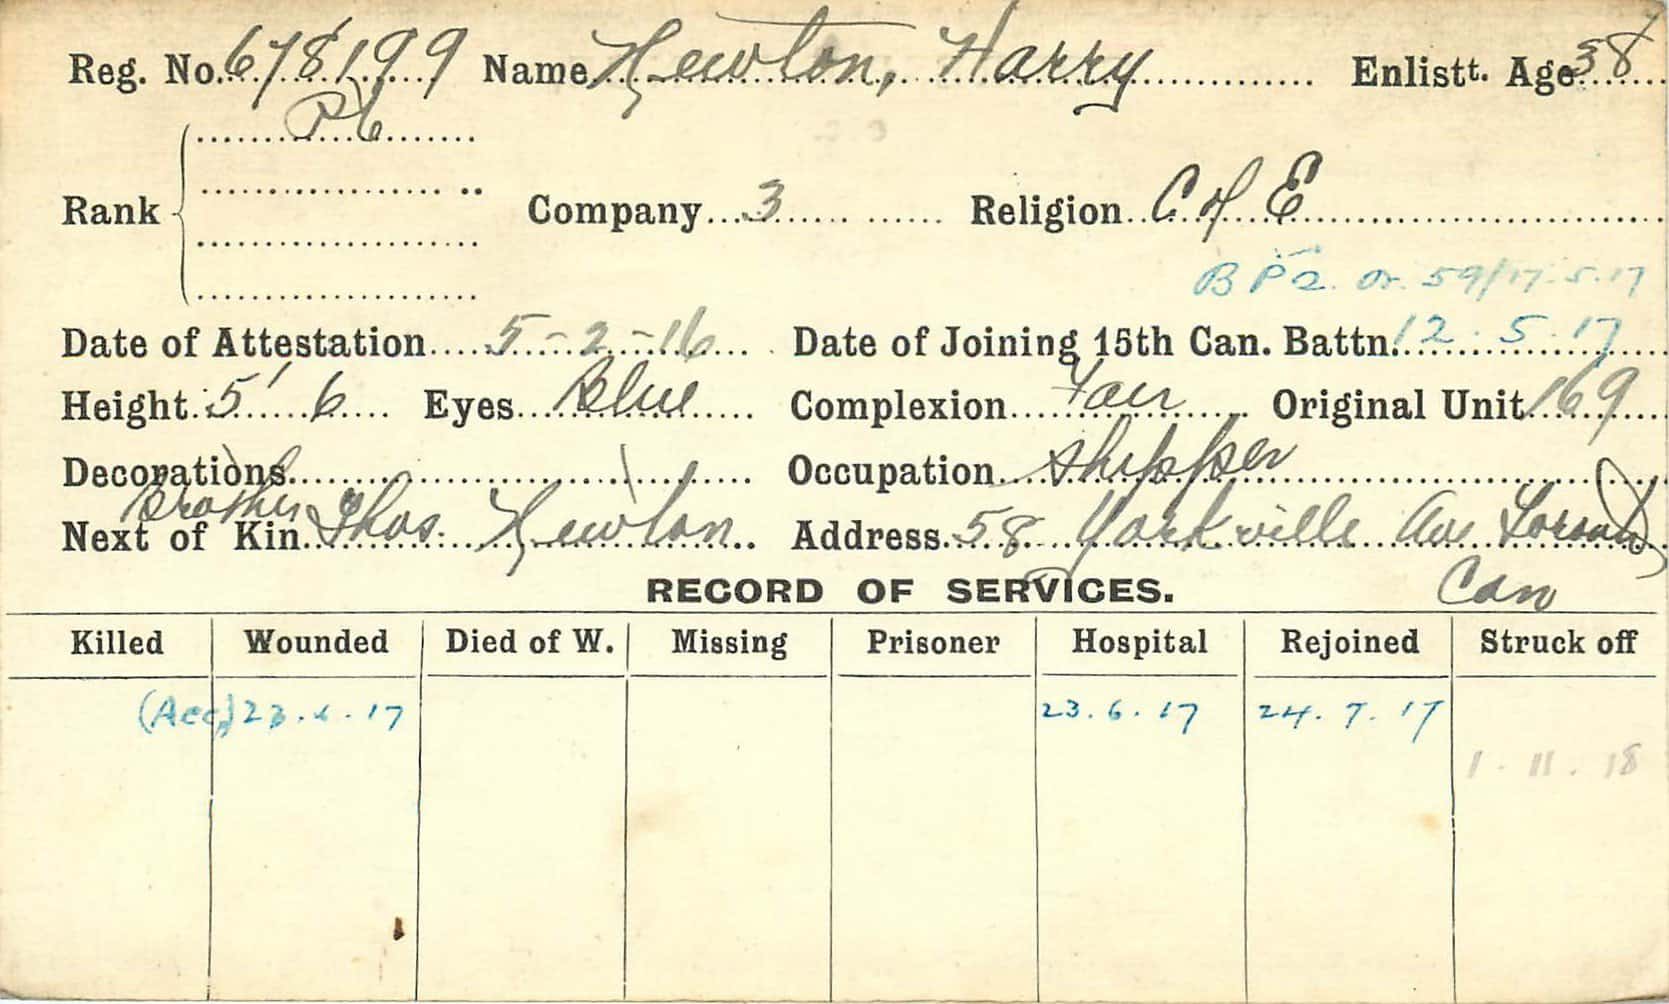 Reg. No. 678199 Name Newton, Harry Enlistt. Age 38
Pte
Rank Company 3 Religion C of E
B P2. Or. 59/17.5.17
Date of Attestation 5-2-16 Date of Joining 15th Can. Battn. 12.5.17
Height 5' 6 Eyes Blue Complexion Fair Original Unit 169
Decorations Occupation Shipper
Brother
Next of Kin Thos. Newton Address 58 Yorkville Ave Toronto
Can
RECORD OF SERVICES.
Killed Wounded Died of W. Missing Prisoner Hospital Rejoined Struck off
(Acc) 23.6.17 23.6.17 24.7.17
1.11.18